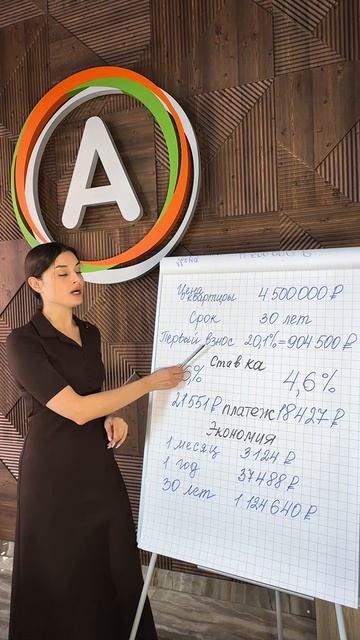 А
Цена
квартиры 4 500 000 ₽
Срок 30 лет
Первый взнос 20,1%=904 500 ₽
Ставка
6% 4,6%
21 551 ₽ платеж 18427 ₽
Экономия
1 месяц 3124 ₽
1 год 37488 ₽
30 лет 1 124 640 ₽